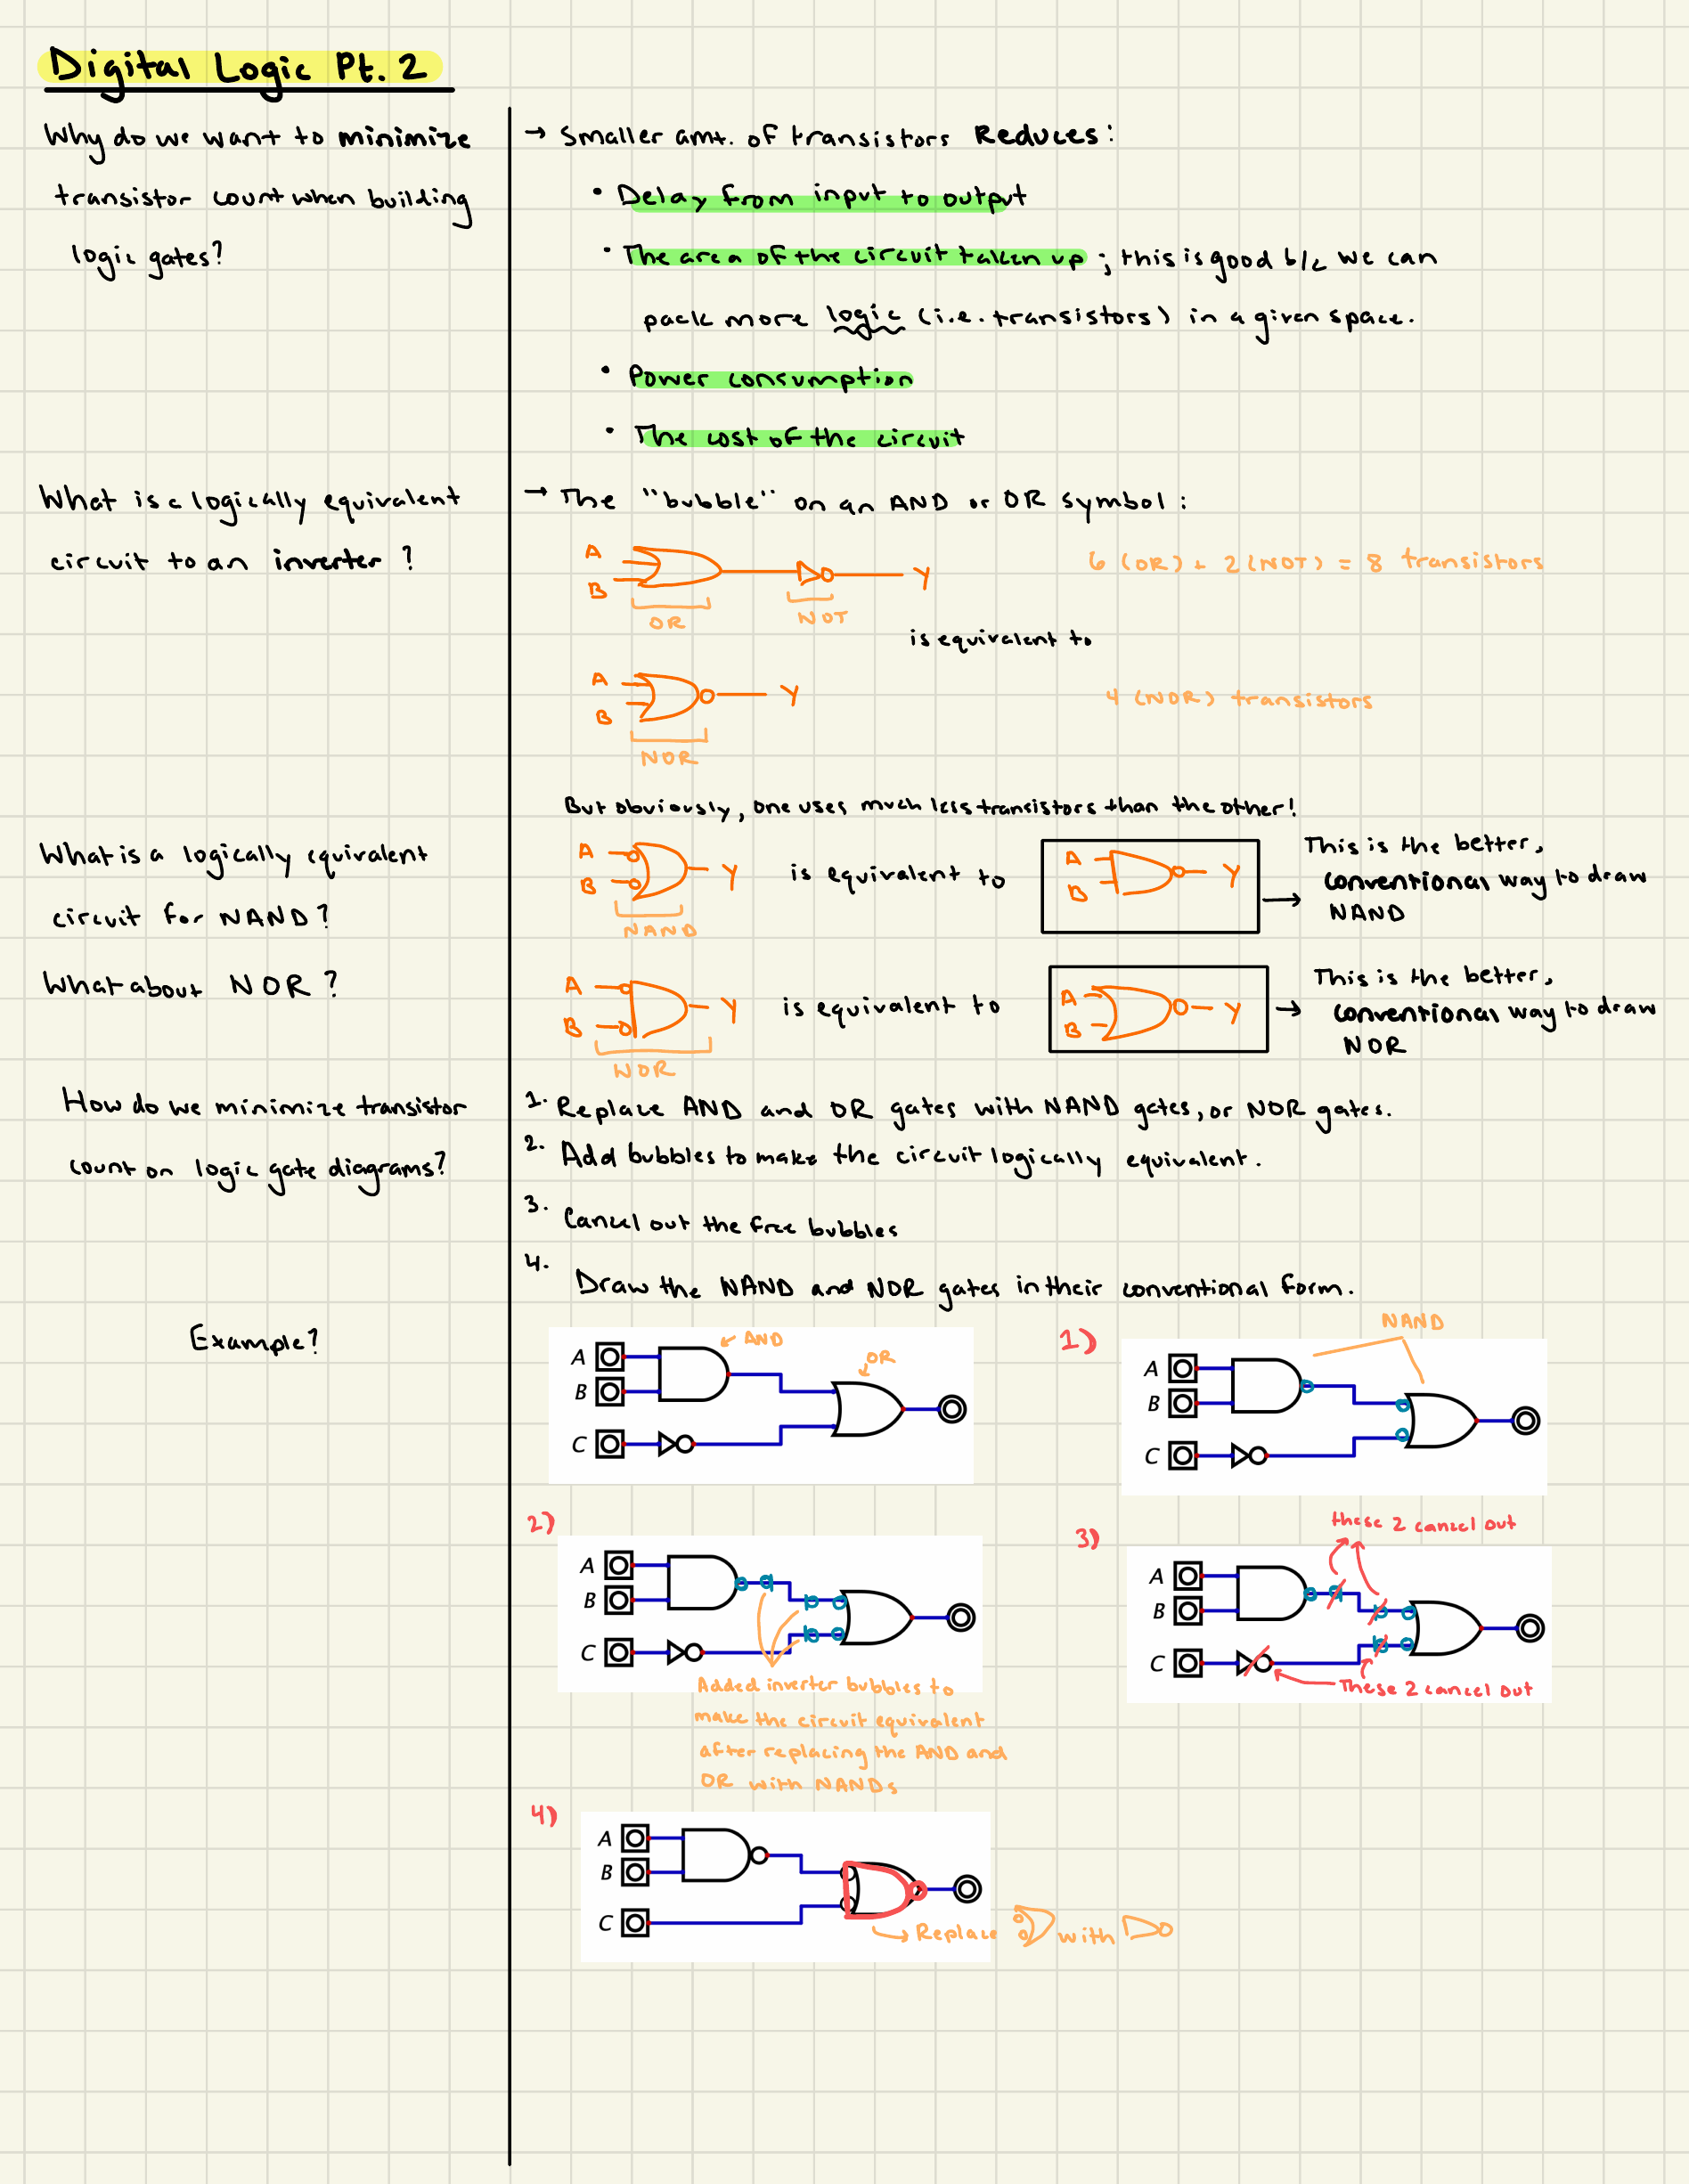 Digital Logic Pt. 2
Why do we want to minimize
transistor count when building
logic gates?
→ Smaller amt. of transistors Reduces:
• Delay from input to output
• The area of the circuit taken up; this is good b/c we can
pack more logic (i.e. transistors) in a given space.
• Power consumption
• The cost of the circuit
What is a logically equivalent
circuit to an inverter?
→ The "bubble" on an AND or OR symbol:
A
B
Y
OR
NOT
6 (OR) + 2 (NOT) = 8 transistors
is equivalent to
A
B
Y
NOR
4 (NOR) transistors
But obviously, one uses much less transistors than the other!
What is a logically equivalent
circuit for NAND?
A
B
Y
NAND
is equivalent to
A
B
Y
This is the better,
conventional way to draw
NAND
What about NOR?
A
B
Y
NOR
is equivalent to
A
B
Y
This is the better,
conventional way to draw
NOR
How do we minimize transistor
count on logic gate diagrams?
1. Replace AND and OR gates with NAND gates, or NOR gates.
2. Add bubbles to make the circuit logically equivalent.
3. Cancel out the free bubbles
4. Draw the NAND and NOR gates in their conventional form.
Example?
A
B
C
AND
OR
1)
A
B
C
NAND
2)
A
B
C
Added inverter bubbles to
make the circuit equivalent
after replacing the AND and
OR with NANDs
3)
these 2 cancel out
A
B
C
These 2 cancel out
4)
A
B
C
Replace with